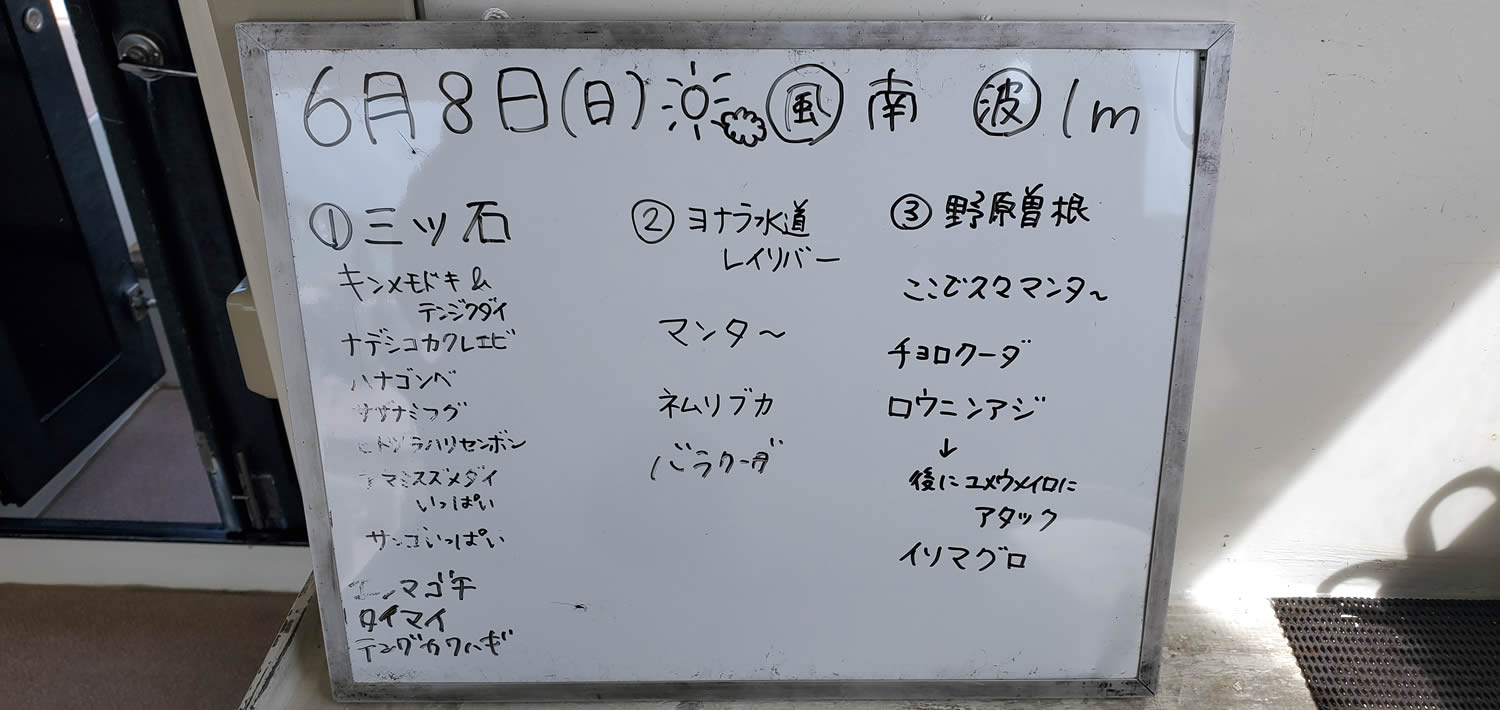 6月8日(日) 風 南 波 1m
① 三ツ石
キンメモドキ &
テンジクダイ
ナデシコカクレエビ
ハナゴンベ
サザナミフグ
ヒトヅラハリセンボン
アマミスズメダイ
いっぱい
サンゴいっぱい
エンマゴチ
タイマイ
テングカワハギ
② ヨナラ水道
レイリバー
マンタ〜
ネムリブカ
バラクーダ
③ 野原曽根
ここでスタマンタ〜
チョロクーダ
ロウニンアジ
↓
後にユメウメイロに
アタック
イソマグロ